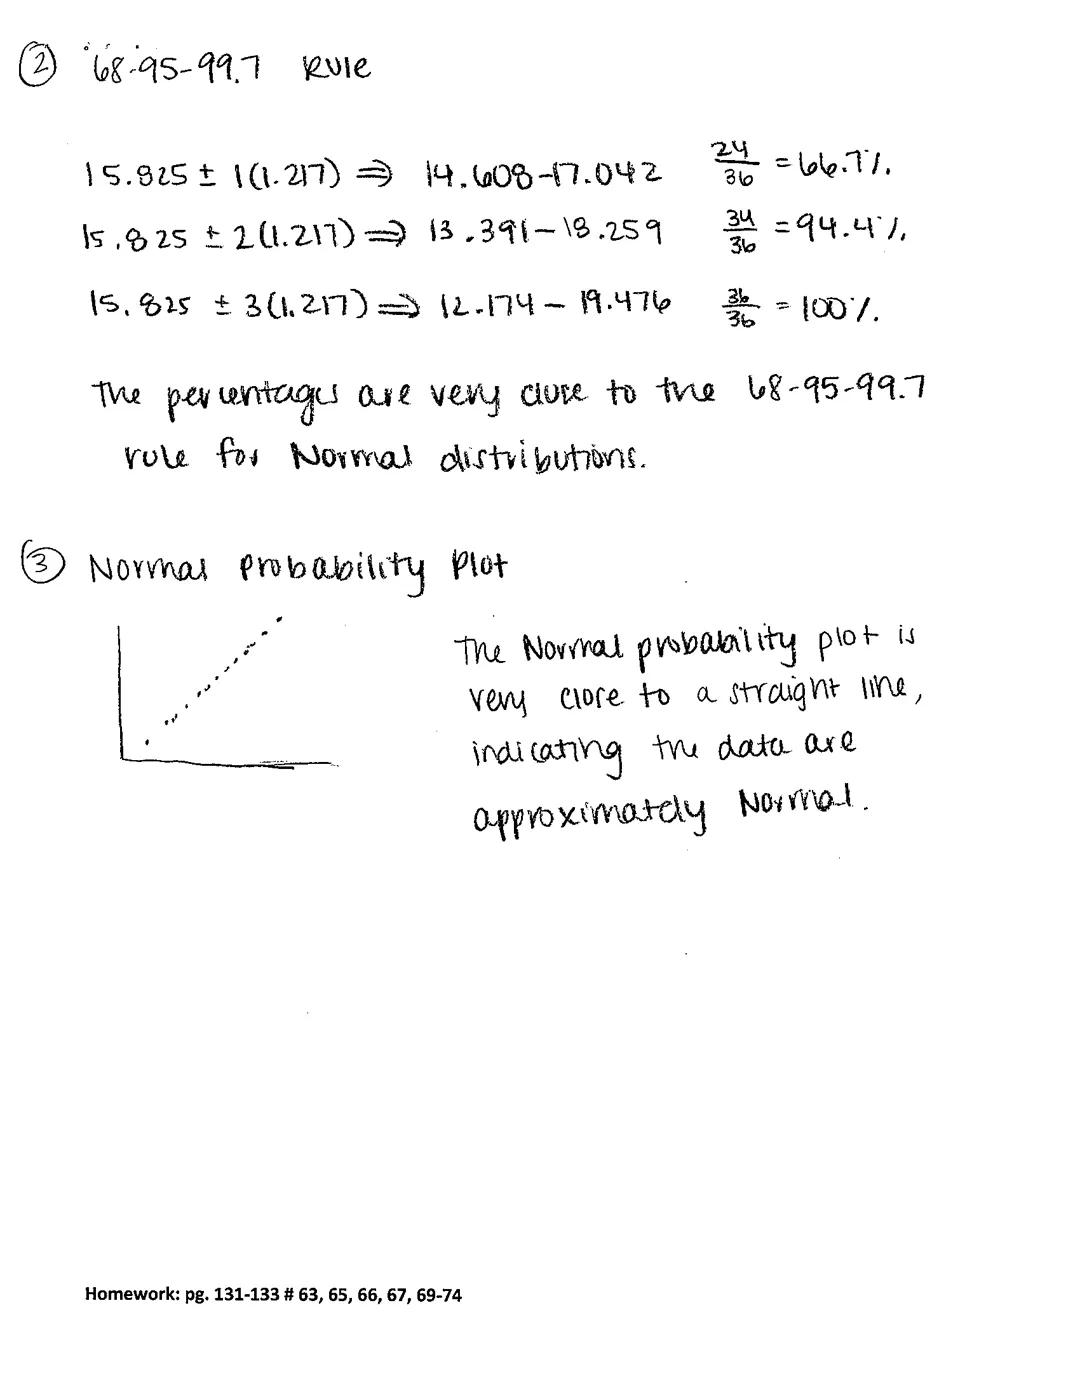 ② 68-95-99.7 Rule
15.825 ± 1(1.217) ⇒ 14.608-17.042 24/36 = 66.7%
15.825 ± 2(1.217) ⇒ 13.391-18.259 34/36 = 94.4%
15.825 ± 3(1.217) ⇒ 12.174-19.476 36/36 = 100%
The percentages are very close to the 68-95-99.7
rule for Normal distributions.
③ Normal Probability Plot
The Normal probability plot is
very close to a straight line,
indicating the data are
approximately Normal.
Homework: pg. 131-133 # 63, 65, 66, 67, 69-74